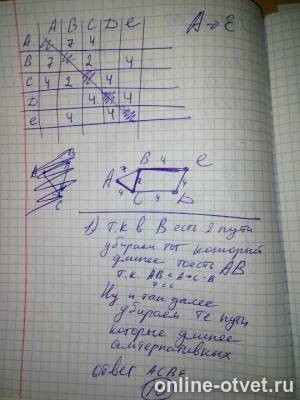 A B C D e
A → E
A 7 4
B 7 2 4
C 4 2 4
D 4 4
e 4 4
A
C
B 4 e
A 7 2 4
4 C 4 D
1) Т.К в B есть 2 пути
убираем тот который
длинее тоесть AB
т.к AB < A-C-B
7 < 6
Ну и так далее
убираем те пути
которые длинее
алтернативных
ответ ACBE
10
online-otvet.ru